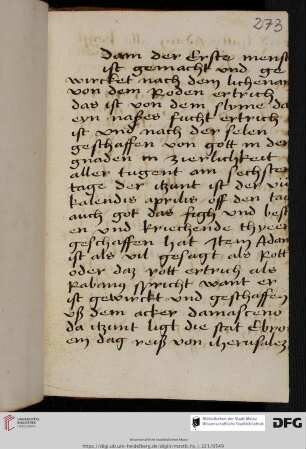 273
Dann der Erste mensch
ist gemacht und ge
wircket nach dem lichenam
von dem Roden ertrich
das ist von dem slyme da
eyn naßes fucht ertrich
ist und nach der selen
geschaffen von gott in den
gnaden in zierlichkeit
aller tugent am sechsten
tage der itzunt ist der viii
kalendis aprilis off den tag
auch got das und best
en und kriechende thyeer
geschaffen hat Item Adam
ist als vil gesagt als Rott
oder daz rott ertrich als
Rabanus spricht want er
ist gewirckt und geschaffen
uß dem acker damasceno
da itzunt ligt die stat Ebron
ein dag reiß von iherusalem
UNIVERSITÄTS-
BIBLIOTHEK
HEIDELBERG
Bibliotheken der Stadt Mainz
Wissenschaftliche Stadtbibliothek
Wissenschaftliche Stadtbibliothek Mainz